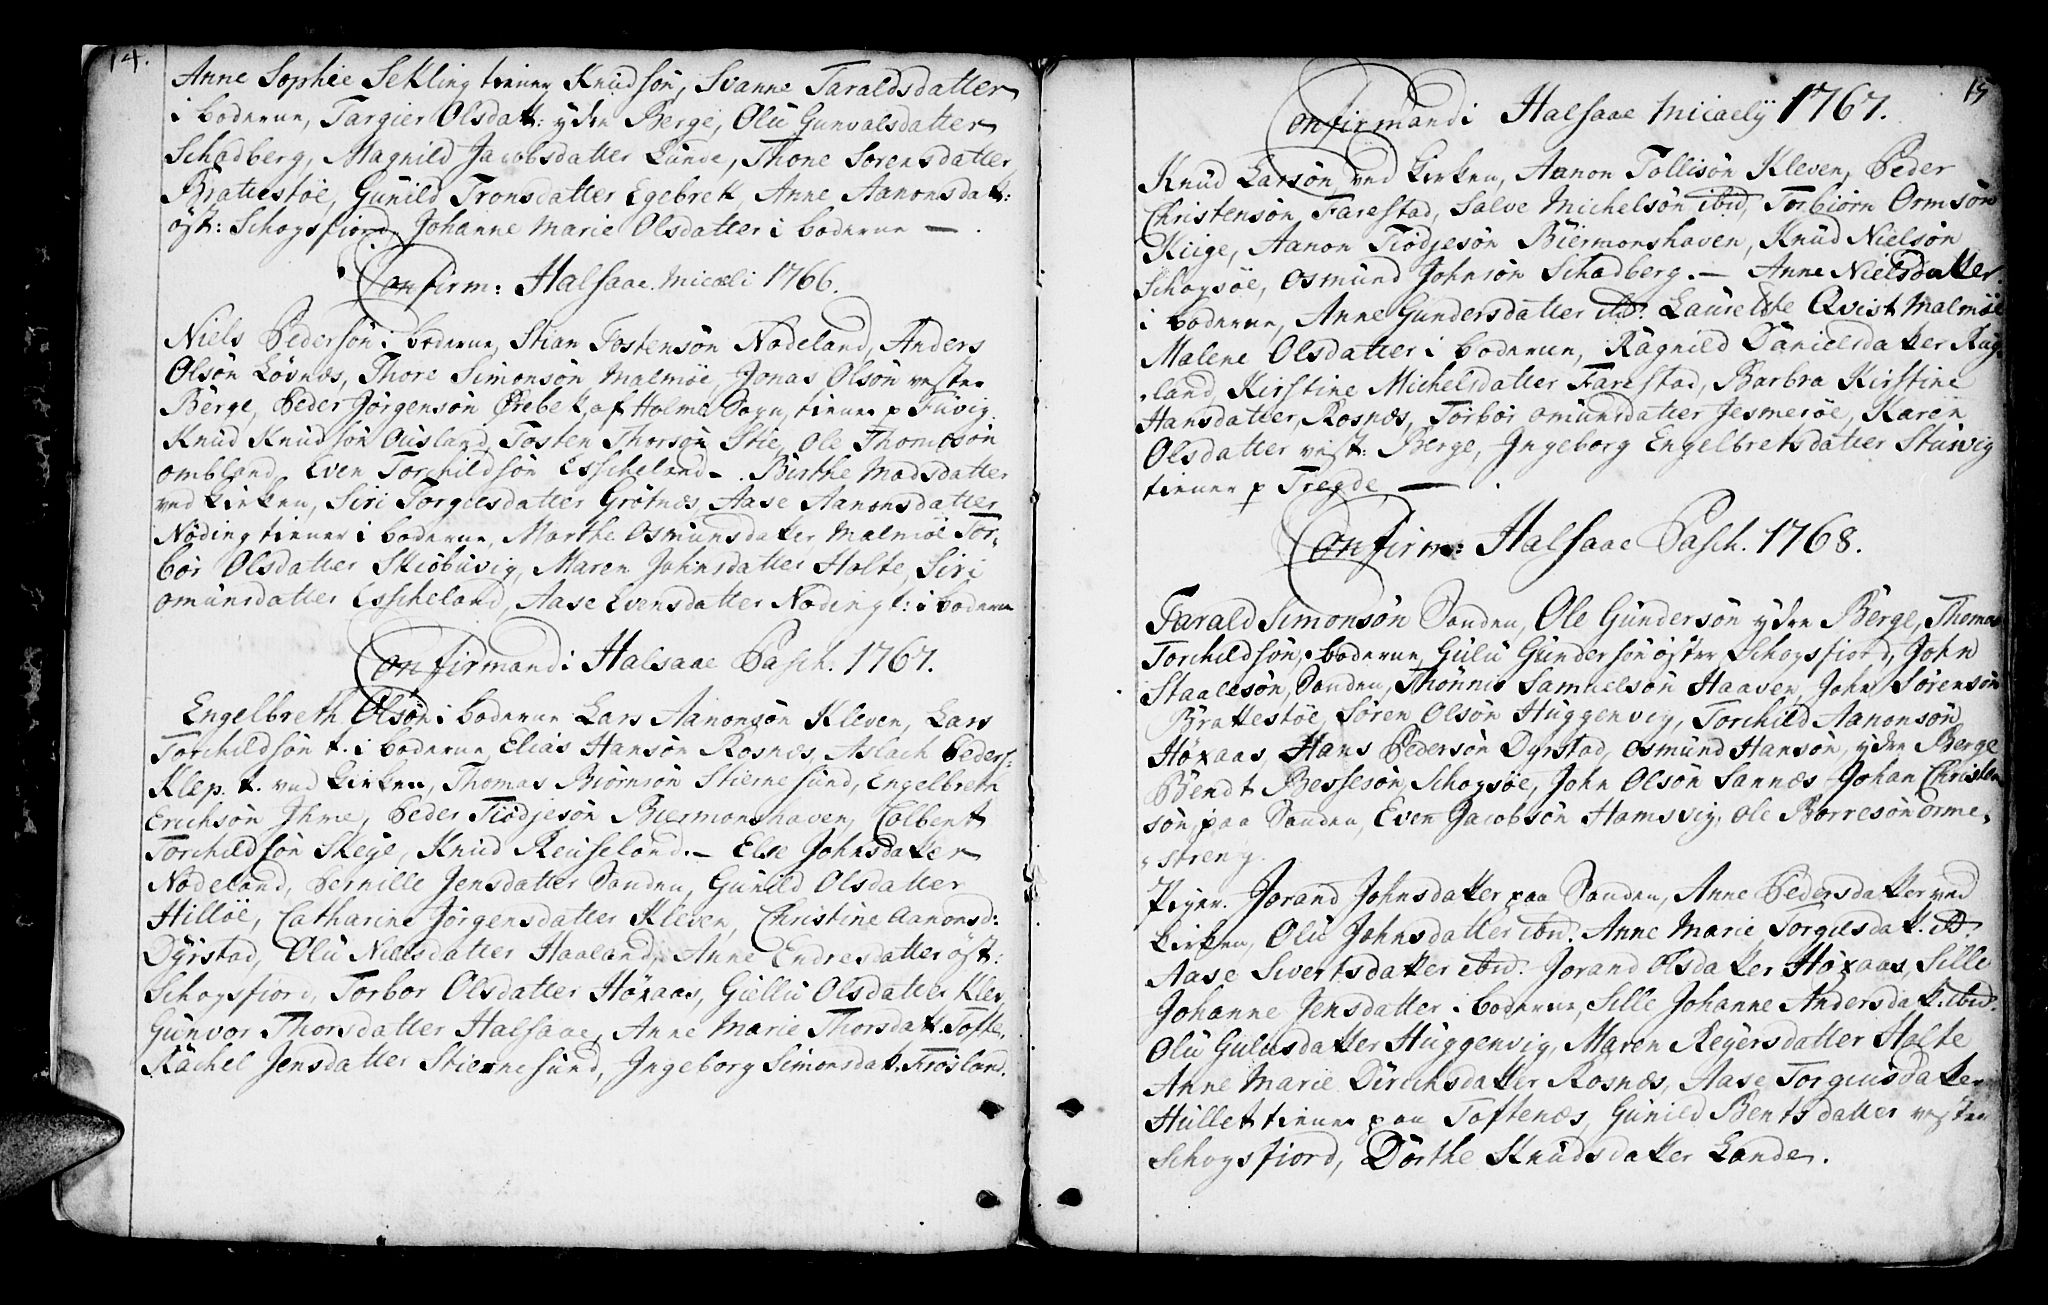 14.
Anne Sophie Sekling tiener Knudsøn, Svanne Taraldsdatter
i boderne, Targier Olsdatt: ydre Berge, Olu Gunvalsdatter
Schadberg, Magnild Jacobsdatter Lunde, Thone Sorensdatter
Brattestøe, Gunild Tronsdatter Egebrek, Anne Aanonsdatt:
øst: Schogsfiord, Johanne Marie Olsdatter i boderne — .
Confirm: Halsaae Micæli 1766.
Niels Pedersøn i boderne, Stian Tostensøn Nodeland, Anders
Olsøn Løvnæs, Thore Simonsøn Malmøe, Jonas Olsøn vester
Berge, Peder Jørgensøn Ørebek af Holme Sogn, tiener p Fuvig
Knud Knudsøn Ousland, Tosten Thorsøn Stie, Ole Thomæsøn
ombland, Even Torchildsøn Esscheland —. Birthe Madsdatter
ved kirken, Siri Torgilsdatter Grotnæs, Aase Aanonsdatter
Noding tiener i boderne, Marthe Osmunsdatter Malmøe Tor-
bor Olsdatter Skiøbuvig, Maren Johnsdatter Holte, Siri
omunsdatter Esscheland, Aase Evensdatter Noding t: i boderne
Confirmandi Halsaae Pasch. 1767.
Engelbreth Olsøn i boderne Lars Aanonsøn Kleven, Lars
Torchildsøn t. i boderne Elias Hansøn Rosnæs, Aslach Peders:
Klep t. ved kirken, Thomas Biørnsøn Stiernesund, Engelbreth
Erichsøn Ihme, Peder Tiødjesøn Biermonshaven, Colbent
Torchildsøn Skege, Knud Reuseland. — Else Johnsdatter
Nodeland, Pernille Jensdatter Sanden, Gunild Olsdatter
Hilløe, Catharine Jørgensdatter Kleven, Christine Aanonsd:
Dyrstad, Olu Nielsdatter Haaland, Anne Endresdatter øst:
Schogsfiord, Torbor Olsdatter Høxaas, Giellu Olsdatter Klev,
Gunvor Thorsdatter Halsaae, Anne Marie Thorsdatt. Tofte,
Rachel Jensdatter Stiernesund, Ingeborg Simonsdatt. Frøsland.
15
Confirmandi Halsaae Micaelij 1767.
Knud Larsøn ved kirken, Aanon Tollisøn Kleven, Peder
Christensøn, Farestad, Salve Michelsøn ibid, Torbiørn Ormsøn
Kiige, Aanon Tiødjesøn Biermonshaven, Knud Nielsøn
Schogsøe, Osmund Johnsøn Schadberg. — Anne Nielsdatter
i boderne, Anne Gundersdatter ibid. Lauretze Qvist Malmøe
Malene Olsdatter i boderne, Ragnild Danielsdatter Rag
land, Kirstine Michelsdatter Farestad, Barbra Kirstine
Hansdatter, Rosnæs, Torbor omunsdatter Jesmerøe, Karen
Olsdatter vest: Berge, Ingeborg Engelbretsdatter Sturvig
tiener p Tregde, — .
Confirm: Halsaae Pasch. 1768.
Tarald Simonsøn Sanden, Ole Gundersøn ydre Berge, Thomas
Torchildsøn, boderne, Gulu Gundersøn øster Schogsfiord, John
Staalesøn, Sanden, Thønnis Samuelsøn Haaven, John Sørensøn
Brattestøe, Søren Olsøn Huggenvig, Torchild Aanonsøn
Høxaas, Hans Pedersøn Dyrstad, Osmund Hansøn, ydre Berge
Bendt Bessesøn, Schogsøe, John Olsøn Sannæs, Johan Christen
søn, paa Sanden, Even Jacobsøn Hamsvig, Ole Borresøn Orme-
streng.
Piger. Jorand Johnsdatter paa Sanden, Anne Pedersdatter ved
kirken, Olu Johnsdatter ibid. Anne Marie Torgilsdatt. ib.
Aase Sivertsdatter ibid. Jorand Olsdatter Høxaas, Sille
Johanne Jensdatter i boderne, Sille Johanne Andersdatt. ibid.
Olu Gulusdatter Huggenvig, Maren Reyersdatter Holte
Anne Marie Dirichsdatter Rosnæs, Aase Torgiusdatter
Hullet tiener paa Toftenæs, Gunild Bentsdatter vester
Schogsfiord, Dorthe Knudsdatter Lande.